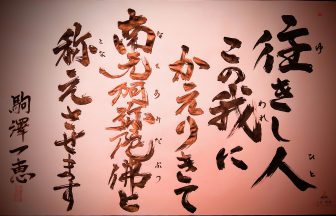 往きし人
この我に
かえりきて
南无阿弥陀佛と
称えさせます
駒澤一恵